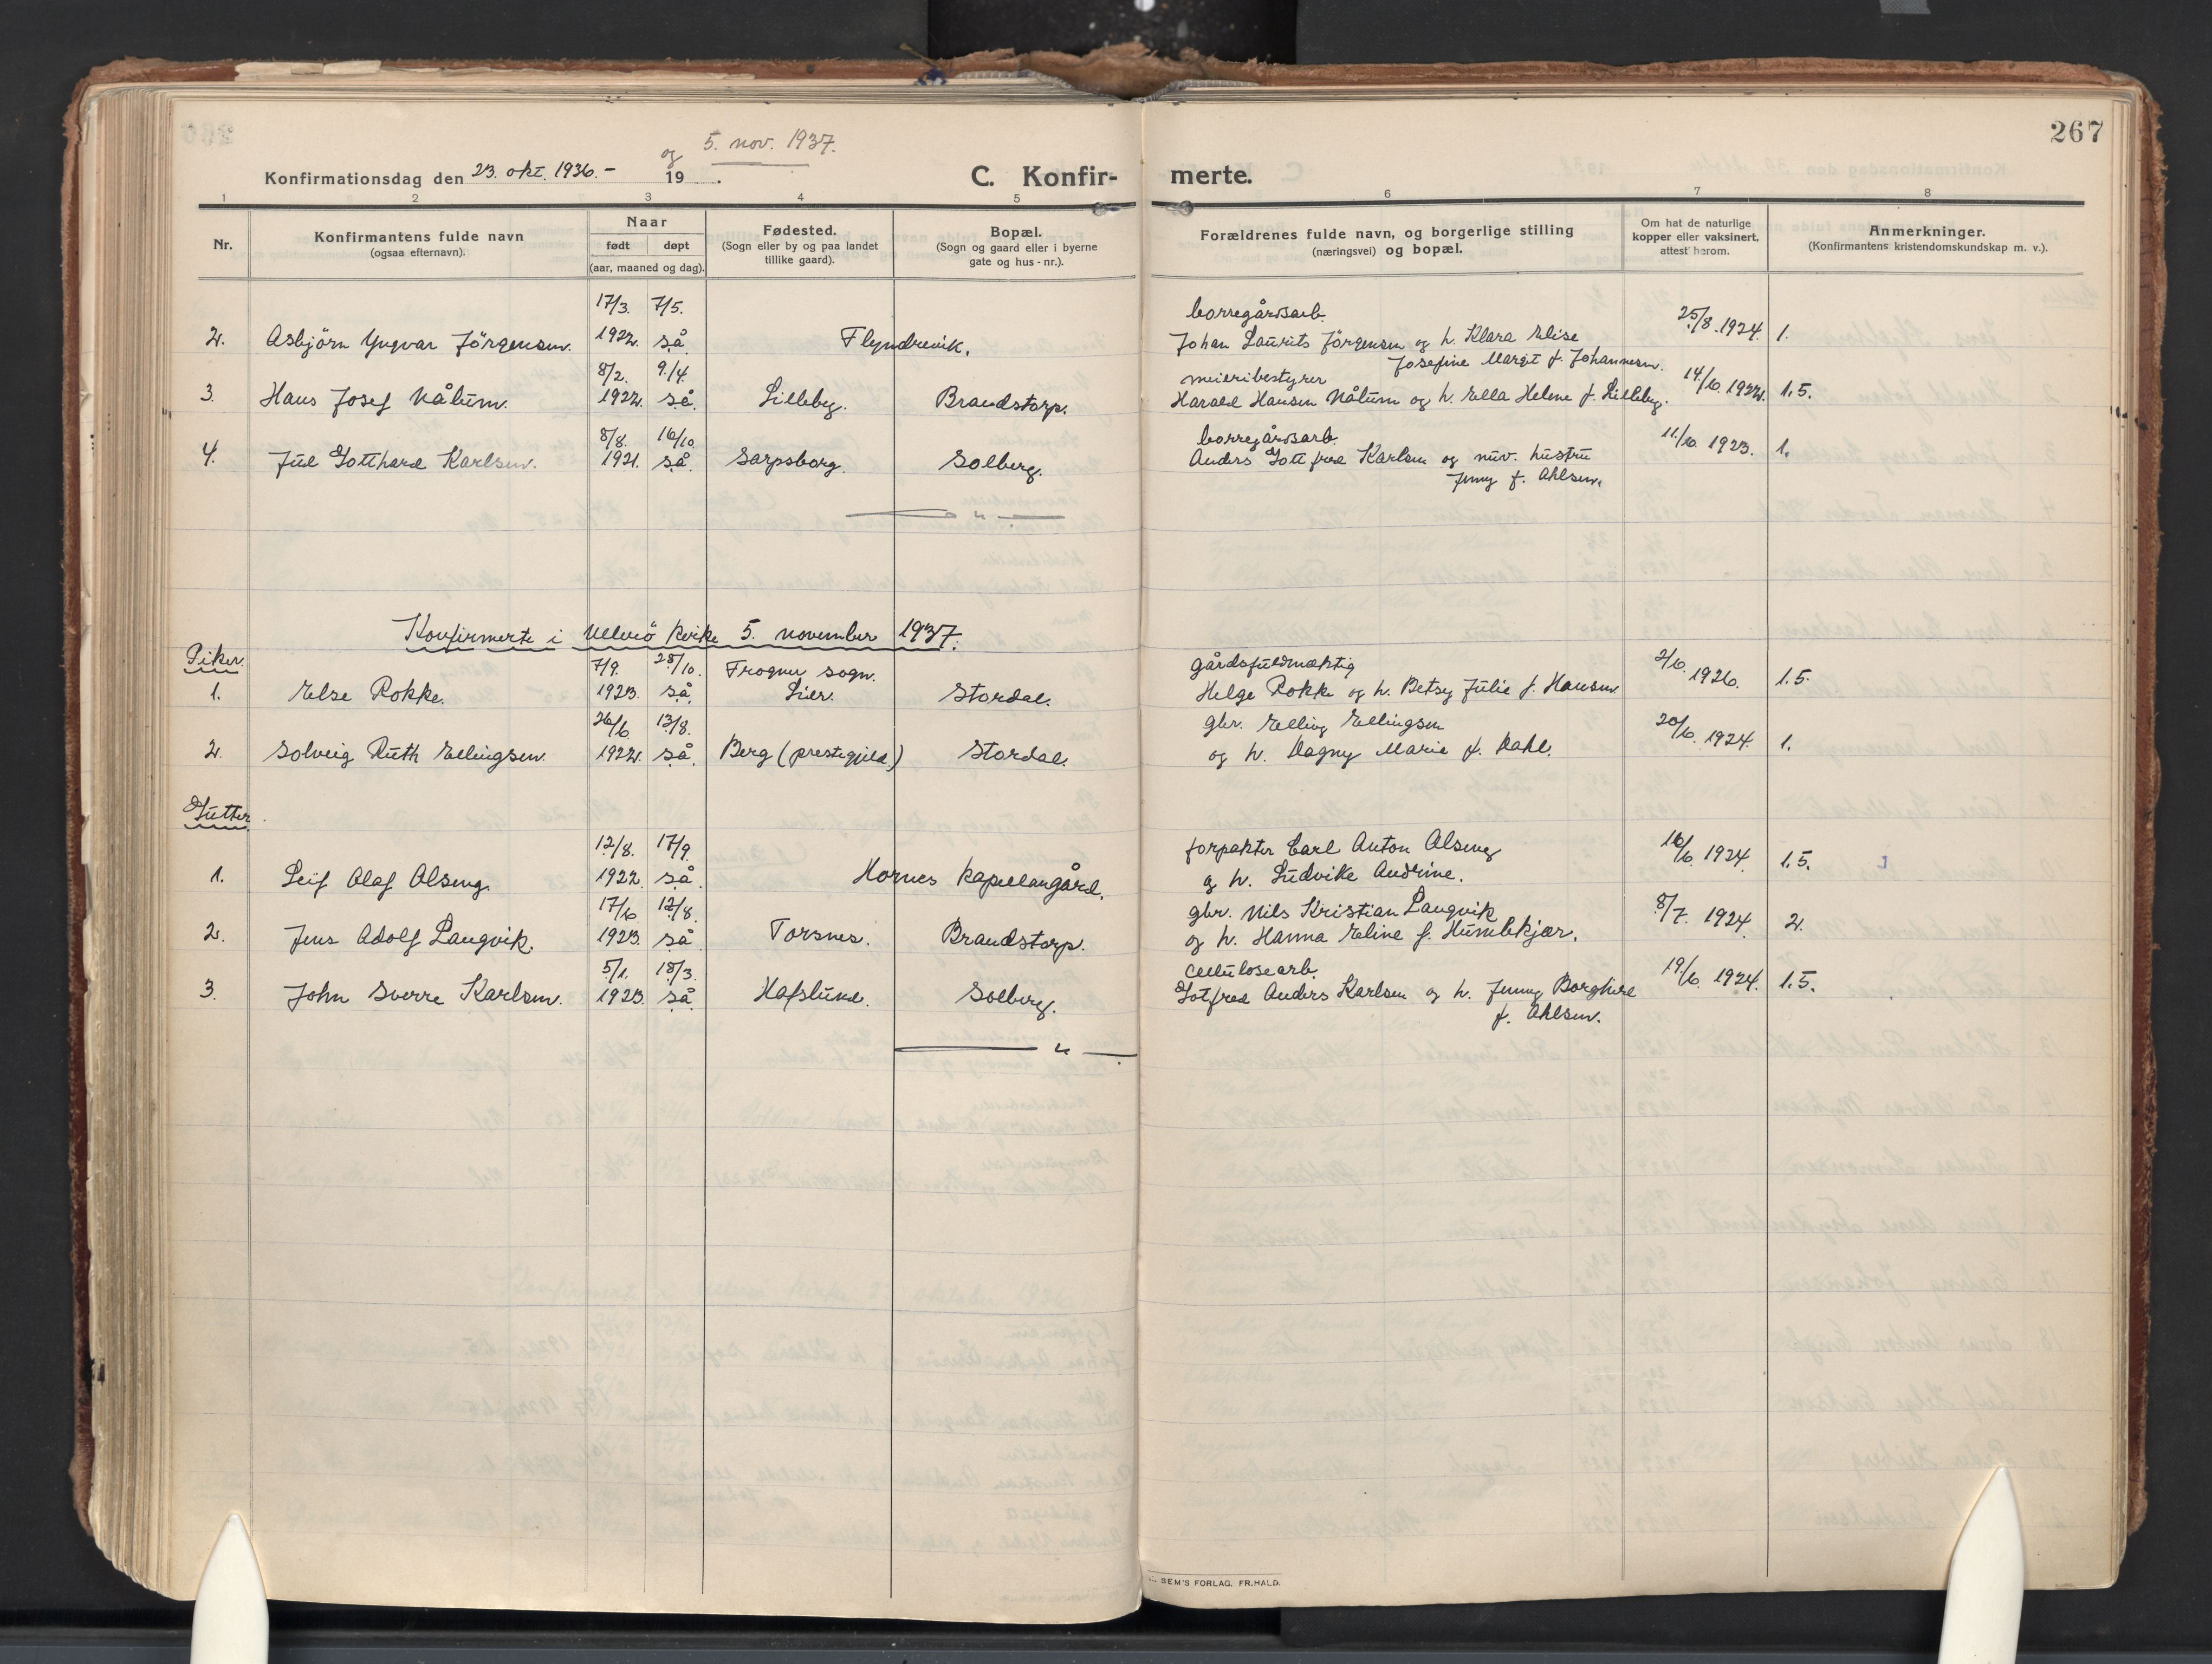 267
og 5. nov. 1937.
Konfirmationsdag den 23. okt. 1936. - 19 . C. Konfir- merte.
1 2 3 4 5 6 7 8
Nr. Konfirmantens fulde navn (ogsaa efternavn). Naar født døpt (aar, maaned og dag). Fødested. (Sogn eller by og paa landet tillike gaard). Bopæl. (Sogn og gaard eller i byerne gate og hus-nr.). Forældrenes fulde navn, og borgerlige stilling (næringsvei) og bopæl. Om hat de naturlige kopper eller vaksinert, attest herom. Anmerkninger. (Konfirmantens kristendomskundskap m. v.).
17/3. 7/5. borregårdsarb.
2. Asbjörn Yngvar Jörgensen. 1922. så. Flyndrevik. Johan Laurits Jörgensen og h. Klara Elise 25/8. 1924. 1.
Josefine Margit f. Johannesen.
8/2. 9/4. meieribestyrer
3. Hans Josef Nålum. 1922. så. Lilleby. Brandstorp. Harald Hansen Nålum og h. Ella Helene f. Lilleby. 14/6. 1922. 1.5.
8/8. 16/10 borregårdsarb.
4. Jul Gotthard Karlsen. 1921. så. Sarpsborg. Solberg. Anders Gottfred Karlsen og nuv. hustru 11/6. 1923. 1.
Jenny f. Ahlsen.
— " —
Konfirmerte i Ullerö kirke 5. november 1937.
Piker.
7/9. 28/10. Frogner sogn. gårdsfuldmektig
1. Else Rokke. 1923. så. Lier. Stordal. Helge Rokke og h. Betsy Julie f. Hansen 2/6. 1926. 1.5.
26/6. 13/8. gbr. Elling Ellingsen
2. Solveig Ruth Ellingsen. 1922. så. Berg (prestegjeld.) Stordal. og h. Dagny Marie f. Dahl. 20/6. 1924. 1.
Gutter.
12/8. 17/9. forpakter Carl Anton Alseng
1. Leif Olaf Alseng. 1922. så. Hornes kapellangård. og h. Ludvike Andrine. 16/6. 1924. 1.5.
17/6. 12/8. gbr. Nils Kristian Langvik
2. Jens Adolf Langvik. 1923. så. Torsnes. Brandstorp. og h. Hanna Eline f. Humlekjær. 8/7. 1924. 2.
5/1. 18/3. cellulosearb.
3. John Sverre Karlsen. 1923. så. Hafslund. Solberg. Gotfred Anders Karlsen og h. Jenny Borghild 19/6. 1924. 1.5.
f. Ahlsen.
— " —
SEM'S FORLAG, FR.HALD.